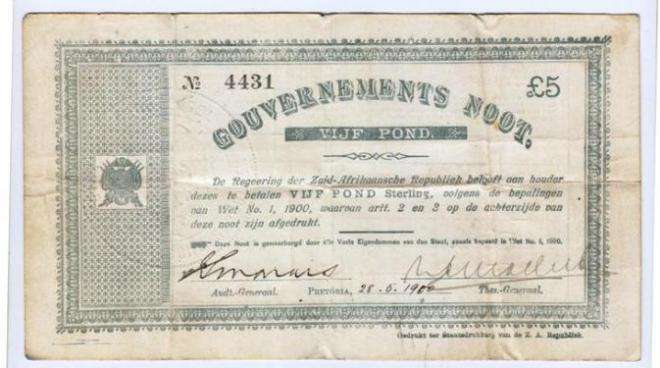 № 4431
£5
GOUVERNEMENTS NOOT.
VIJF POND.
De Regeering der Zuid-Afrikaansche Republiek belooft aan houder
dezes te betalen VIJF POND Sterling, volgens de bepalingen
van Wet No. 1, 1900, waarvan artt. 2 en 3 op de achterzijde van
deze noot zijn afgedrukt.
Deze Noot is gewaarborgd door alle Vaste Eigendommen van den Staat, zooals bepaald in Wet No. 1, 1900.
Audt.-Generaal. PRETORIA, 28. 5. 1900 Thes.-Generaal.
Gedrukt ter Staatsdrukkerij van de Z. A. Republiek.